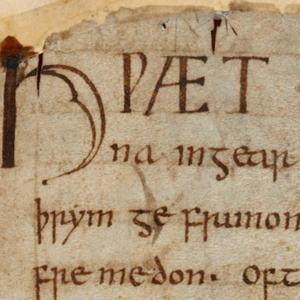 HǷÆT
na ingear
þrym ge frunon
fre medon. oft